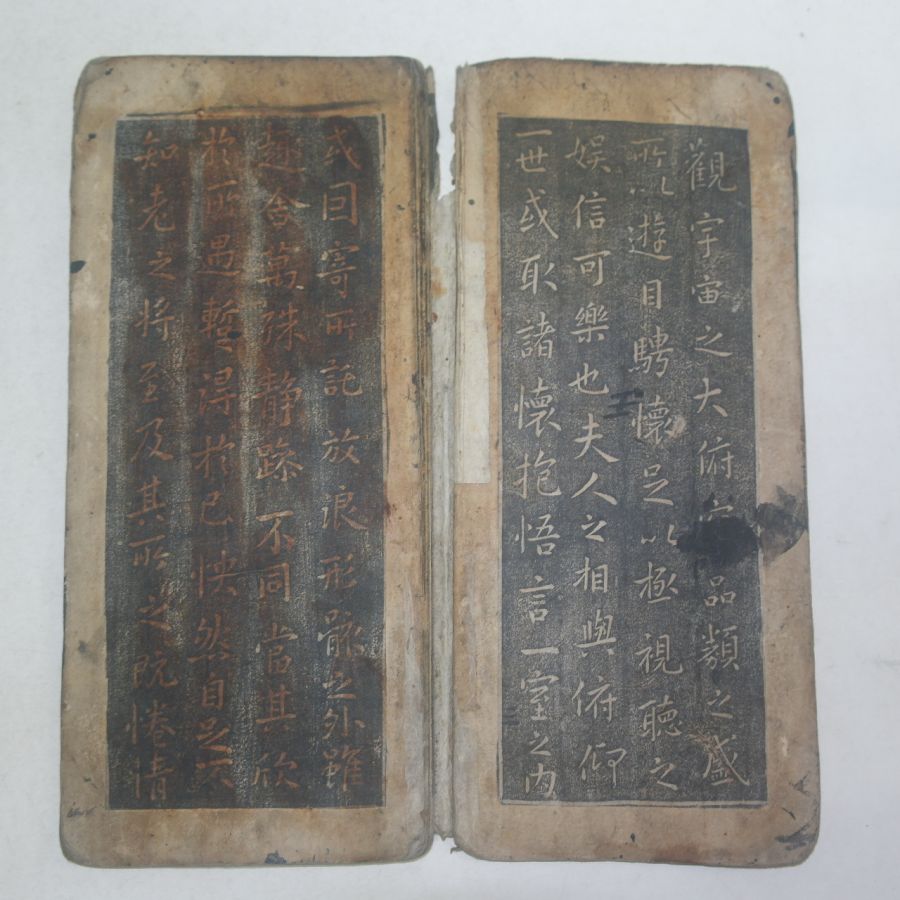 觀宇宙之大俯察品類之盛
所以遊目騁懷足以極視聽之
娛信可樂也夫人之相與俯仰
一世或取諸懷抱悟言一室之内
或因寄所託放浪形骸之外雖
趣舍萬殊靜躁不同當其欣
於所遇暫得於己怏然自足不
知老之將至及其所之既惓情